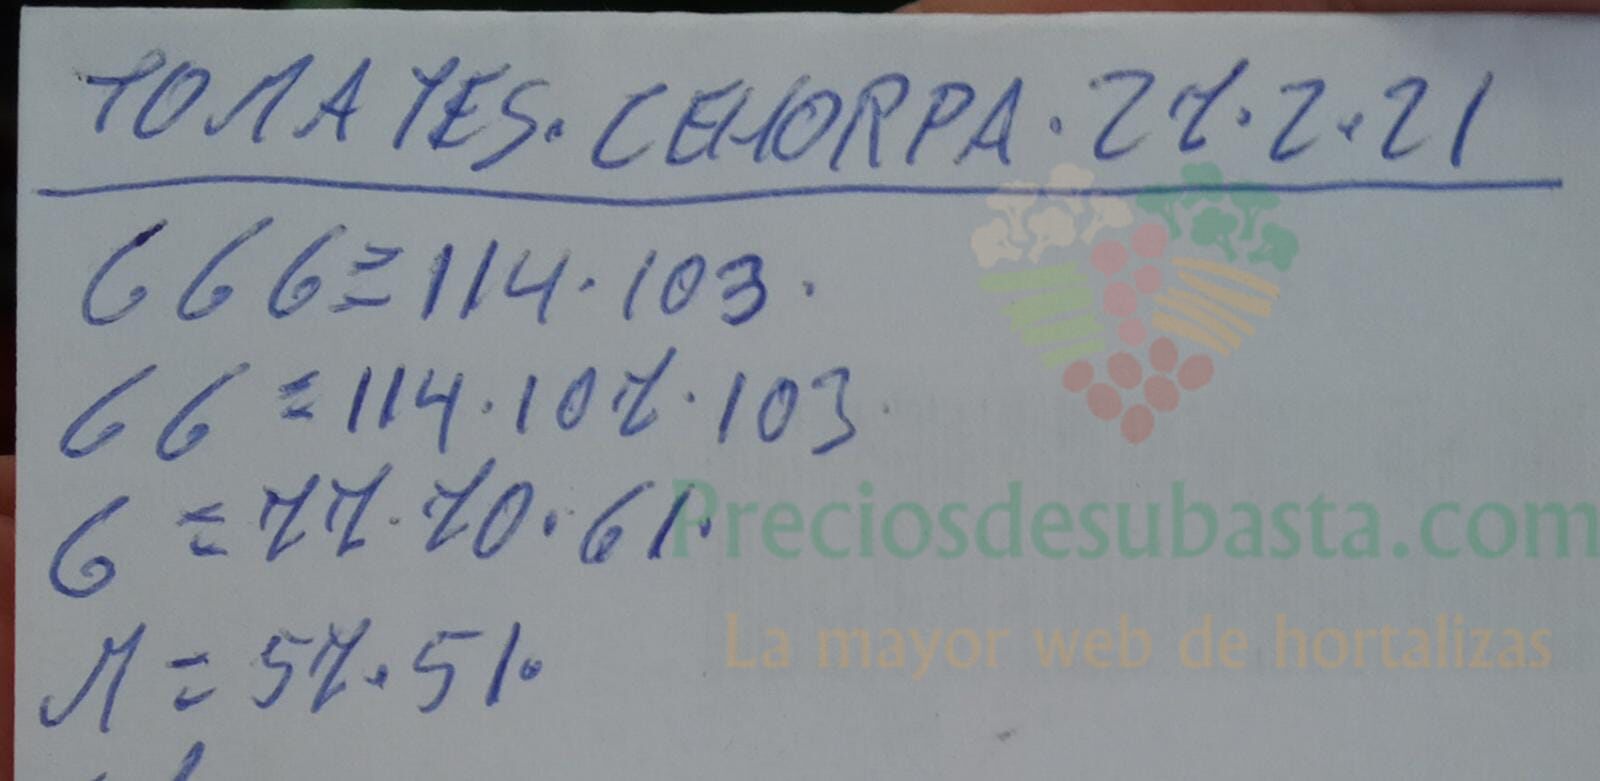 TOMATES. CEHORPA. 27.2.21
GGG = 114.103.
GG = 114.107.103.
G = 77.70.61.
M = 57.51.
Preciosdesubasta.com
La mayor web de hortalizas